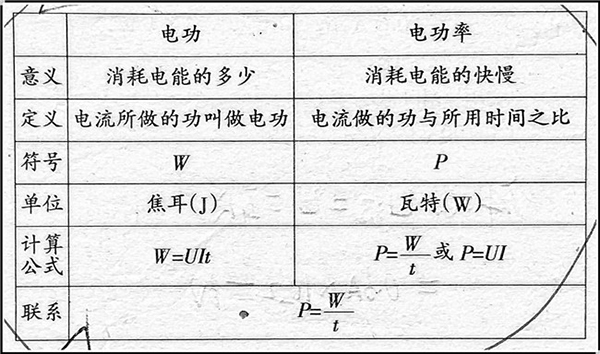 电功 电功率
意义 消耗电能的多少 消耗电能的快慢
定义 电流所做的功叫做电功 电流做的功与所用时间之比
符号 W P
单位 焦耳(J) 瓦特(W)
计算公式 W=UIt P=W/t或 P=UI
联系 P=W/t